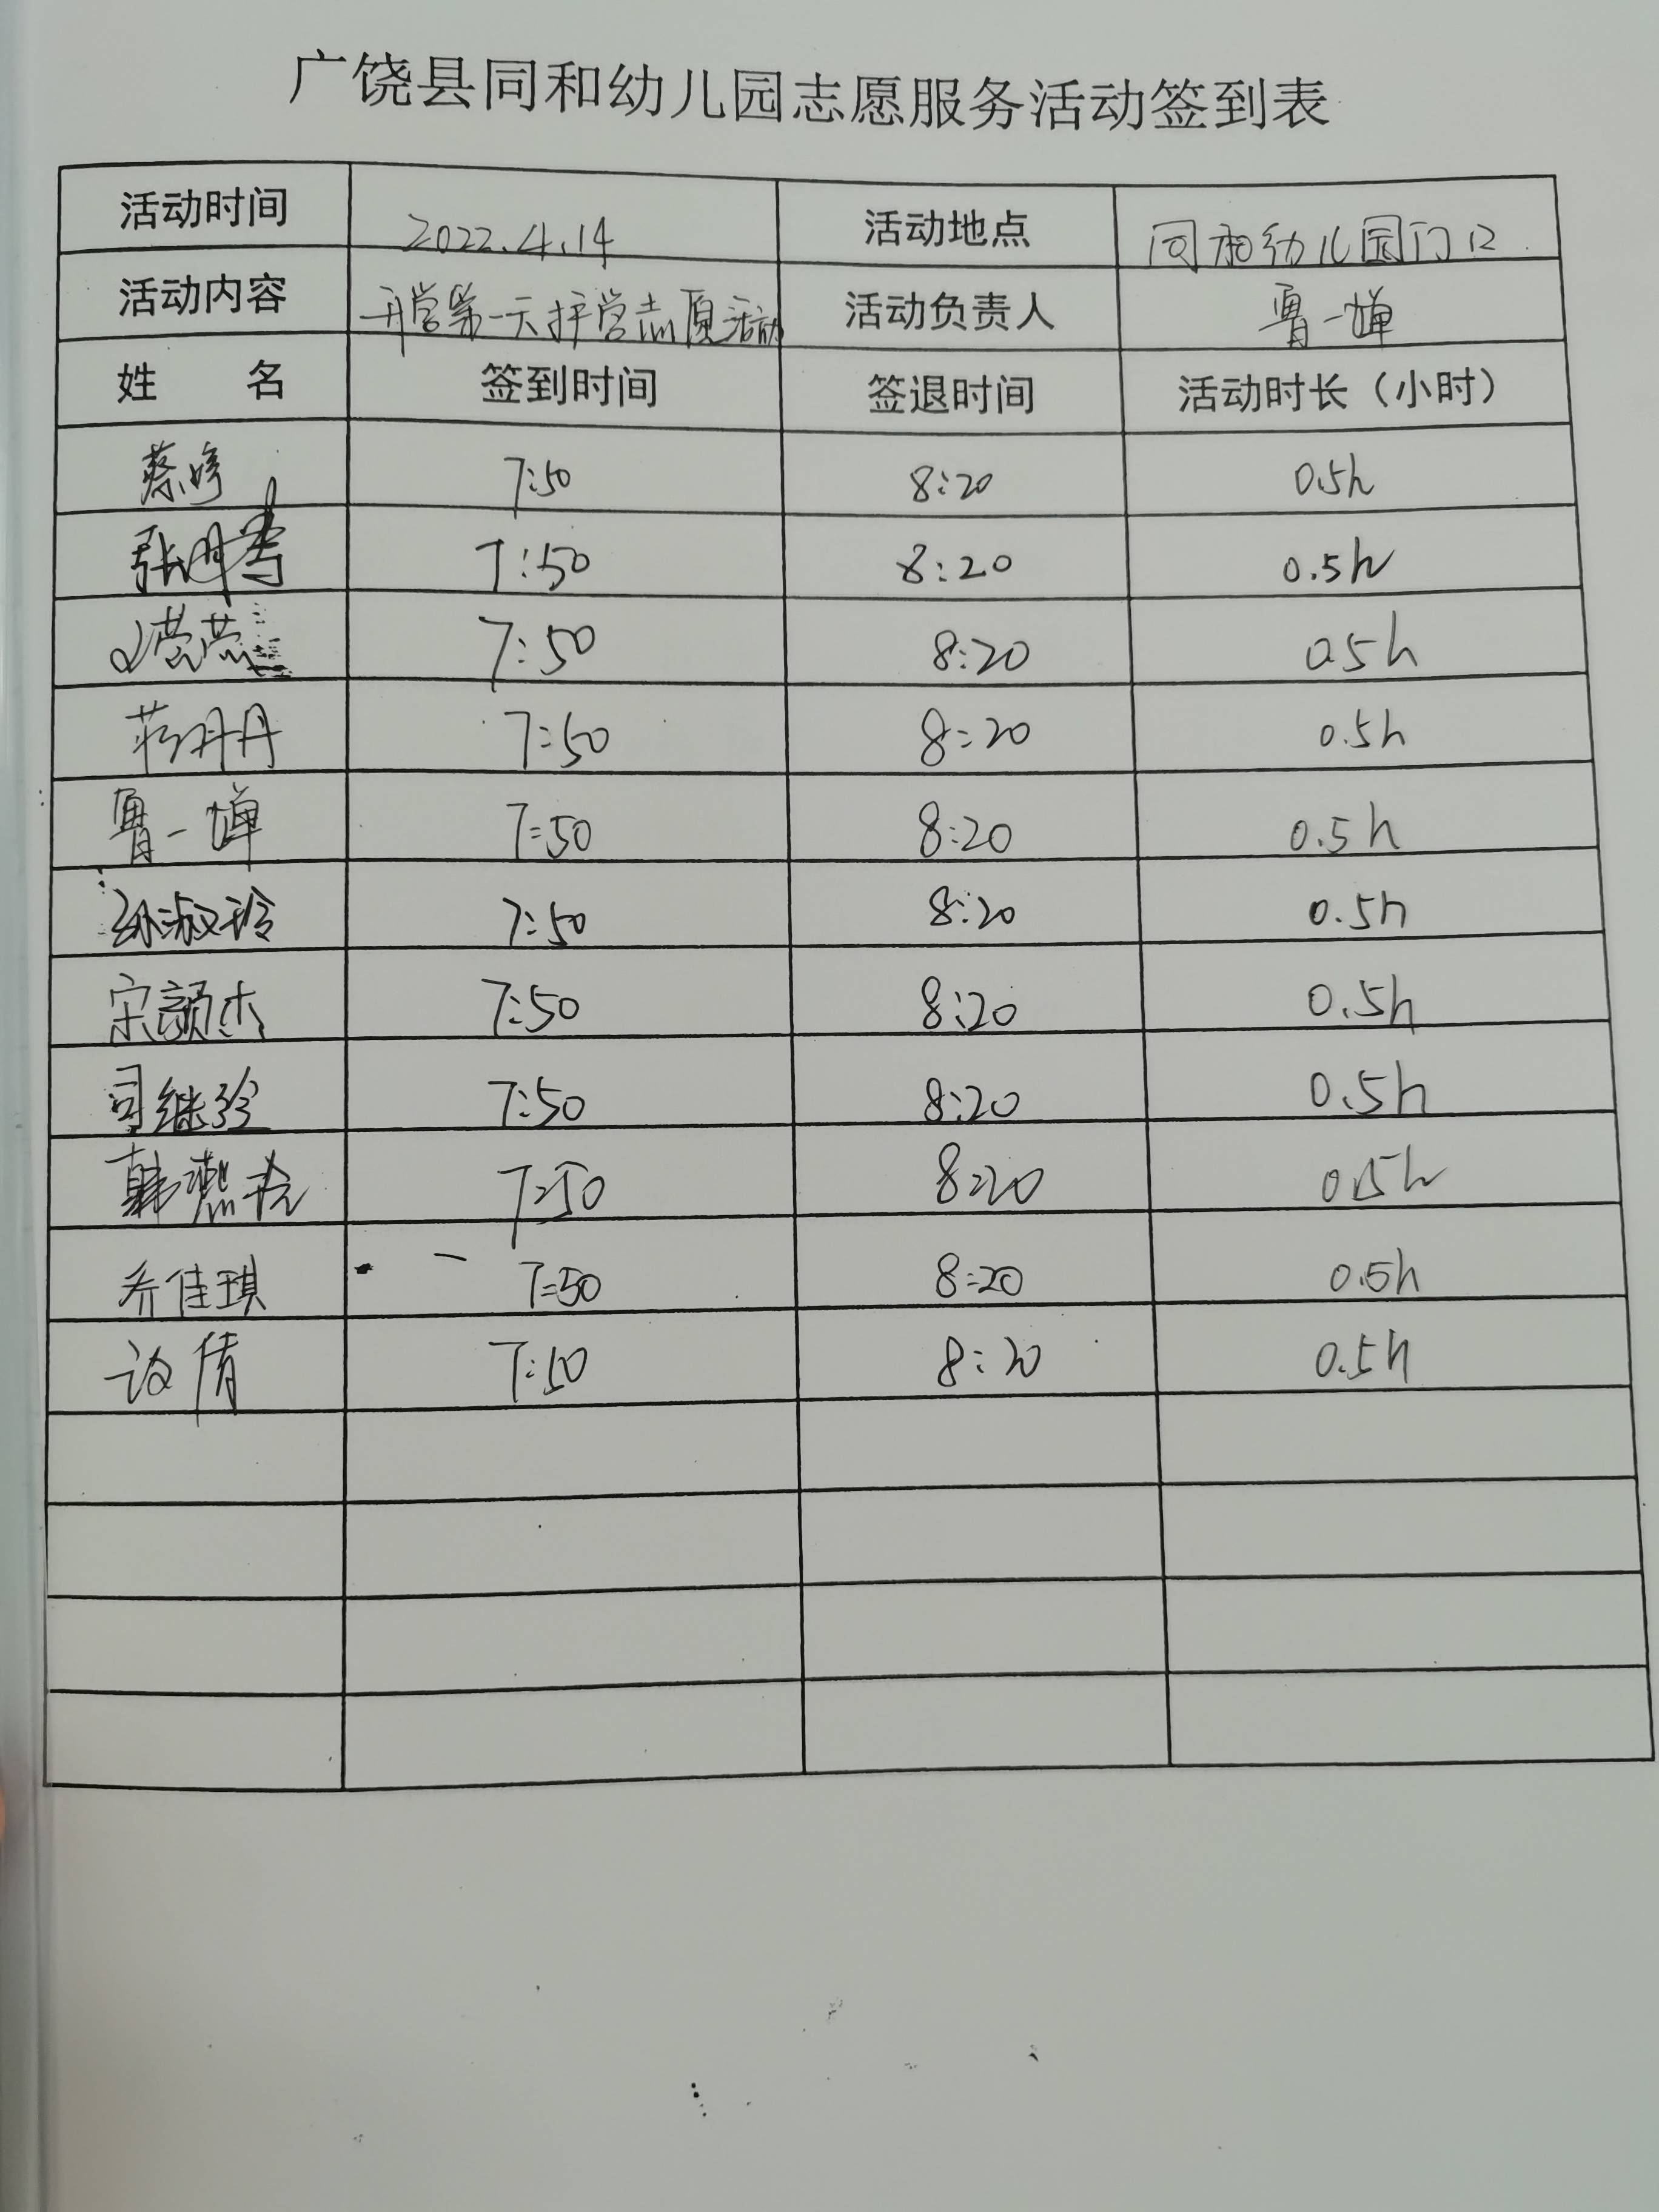 广饶县同和幼儿园志愿服务活动签到表
活动时间 2022.4.14 活动地点 同和幼儿园门口
活动内容 开学第一天护学志愿活动 活动负责人 一婵
姓 名 签到时间 签退时间 活动时长（小时）
蔡 7:50 8:20 0.5h
张 7:50 8:20 0.5h
7:50 8:20 0.5h
蒋丹丹 7:50 8:20 0.5h
一婵 7:50 8:20 0.5h
孙淑玲 7:50 8:20 0.5h
宋颜杰 7:50 8:20 0.5h
司继玲 7:50 8:20 0.5h
韩燕 7:50 8:20 0.5h
乔佳琪 7:50 8:20 0.5h
倩 7:50 8:20 0.5h